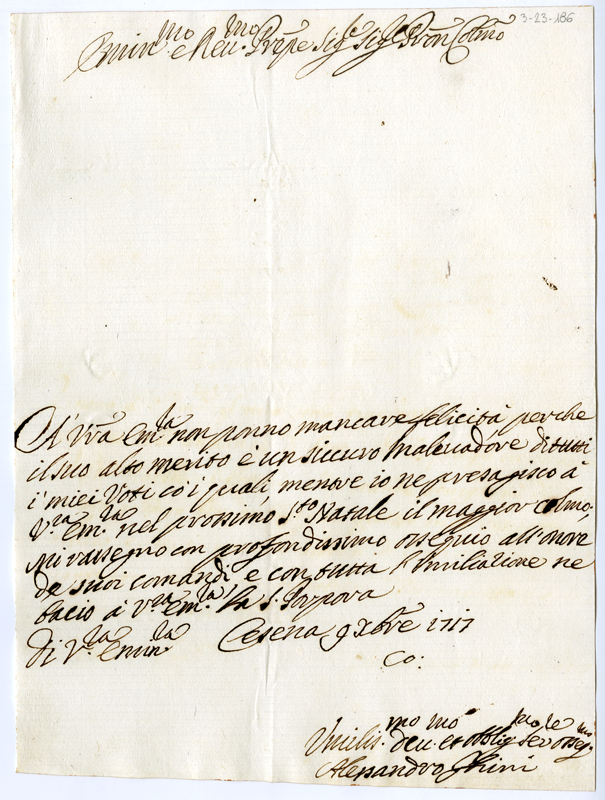 3-23-186
Emin.mo e Reu.mo Prnpe Sig.e Sig.e Pron Colmo
A' Vra Em.za non ponno mancare felicità perche
il suo alto merito è un siccuro maleuadore di tutti
i' miei Voti co' i quali, mentre io ne presagisco à
V.ra Em.za nel prossimo S.to Natale il maggior colmo,
Mi rassegno con profondissimo ossequio all'onore
de suoi comandi, e con tutta l'Umiliazione ne
bacio à V.ra Em.za la S. Porpora
Di V.ra Emin.za Cesena 9 Xbre 1717
Co:
Vmilis.mo deu.mo et obblig.mo Ser.re osseq.mo
Alessandro Ghini